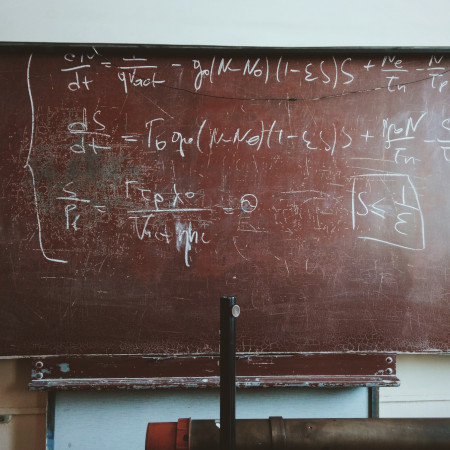 dN/dt = I/qVact - g₀(N-N₀)(1-εS)S + Ne/τn - N/τp
dS/dt = Γ₀g₀(N-N₀)(1-εS)S + N/τn - S
S/Pf = Γτpλ₀/Vactηhc = ②
S ≤ 1/ε